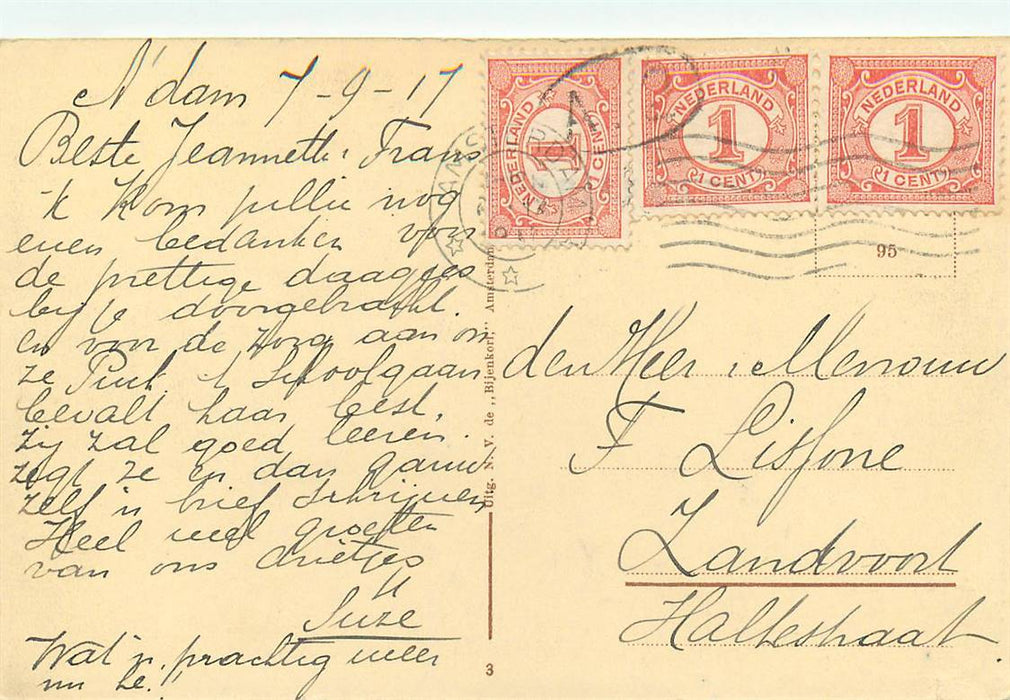 A'dam 7-9-17
Beste Jeannette, Frans
'k Kom jullie nog
even bedanken voor
de prettige daagjes
bij je doorgebracht.
en voor de zorg aan on
ze 't Schoolgaan
bevalt haar best.
zij zal goed leeren.
zegt ze en dan gauw
zelf 'n brief schrijven
Heel veel groeten
van ons drietjes
Suze
Wat 'n prachtig weer
nu he!
NEDERLAND
1
1 CENT
NEDERLAND
1
1 CENT
NEDERLAND
1
1 CENT
95
den Heer Mevrouw
F Lisfone
Zandvoort
Haltestraat
Uitg. N. V. de „Bijenkorf," Amsterdam
3